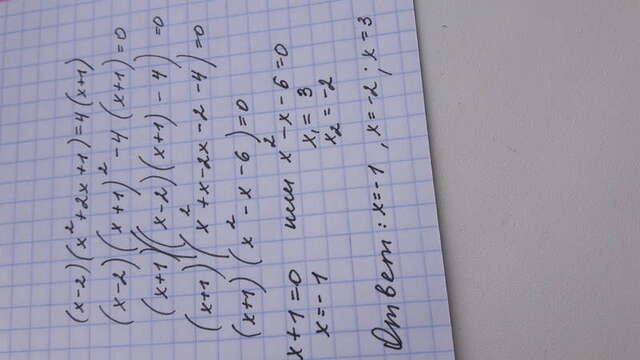 (x-2)(x²+2x+1)=4(x+1)
(x-2)(x+1)²-4(x+1)=0
(x+1)((x-2)(x+1)-4)=0
(x+1)(x²+x-2x-2-4)=0
(x+1)(x²-x-6)=0
x+1=0 или x²-x-6=0
x=-1 x₁=3
x₂=-2
Ответ: x=-1, x=-2; x=3